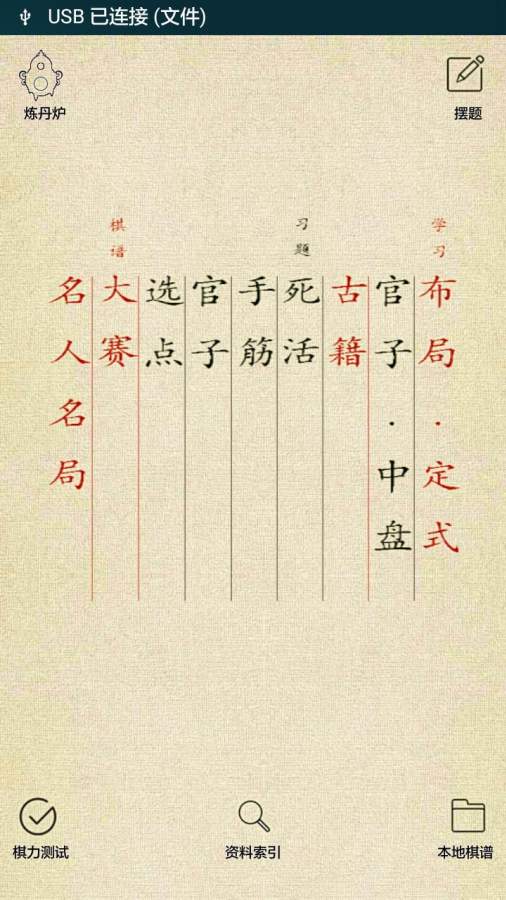 USB 已连接 (文件)
炼丹炉
摆题
学习
布局·定式
官子·中盘
古籍
习题
死活
手筋
官子
选点
棋谱
大赛
名人名局
棋力测试
资料索引
本地棋谱